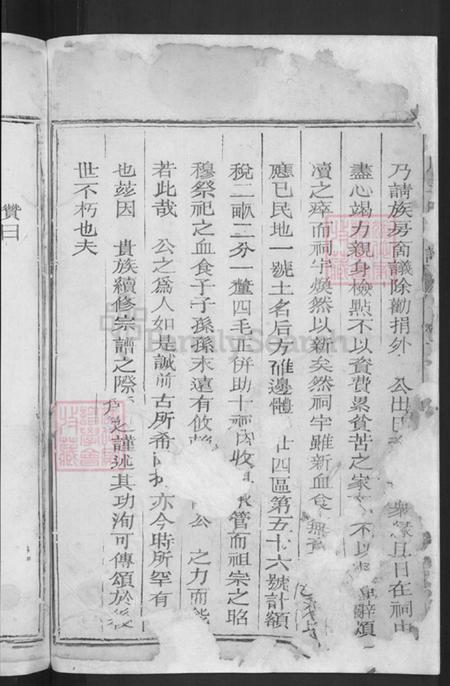 乃請族房商議除勸捐外 公出 旦日在祠中
盡心竭力親身檢點不以資費累貧苦之家 不以 辭頌
凟之瘁而祠宇煥然以新矣然祠宇雖新血食無
應已民地一號土名后方碓邊體 廿四區第五十六號計額
稅二畝二分一釐四毛正併助十祠內收 管而祖宗之昭
穆祭祀之血食于子孫孫末遠有攸 公 之力而能
若此哉 公之爲人如是誠前古所希 亦今時所罕有
也茲因 貴族續修崇譜之際 謹述其功洵可傳頌於
世不朽也夫
贊曰
FamilySearch